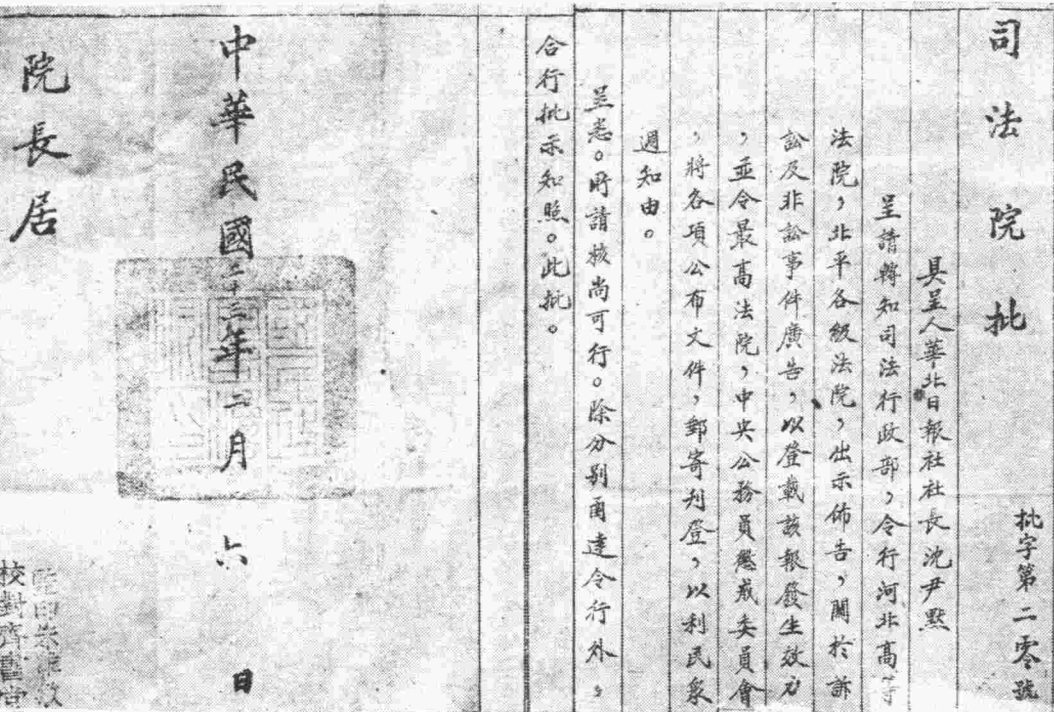 司法院批
批字第二零號
具呈人華北日報社社長沈尹默
呈請轉知司法行政部，令行河北高等
法院，北平各級法院，出示佈告，關於訴
訟及非訟事件廣告，以登載該報發生效力
，並令最高法院，中央公務員懲戒委員會
，將各項公布文件，郵寄刋登，以利民衆
週知由。
呈悉。所請核尚可行。除分别函達令行外，
合行批示知照。此批。
中華民國二十三年二月六日
院長居
監印朱
校對齊